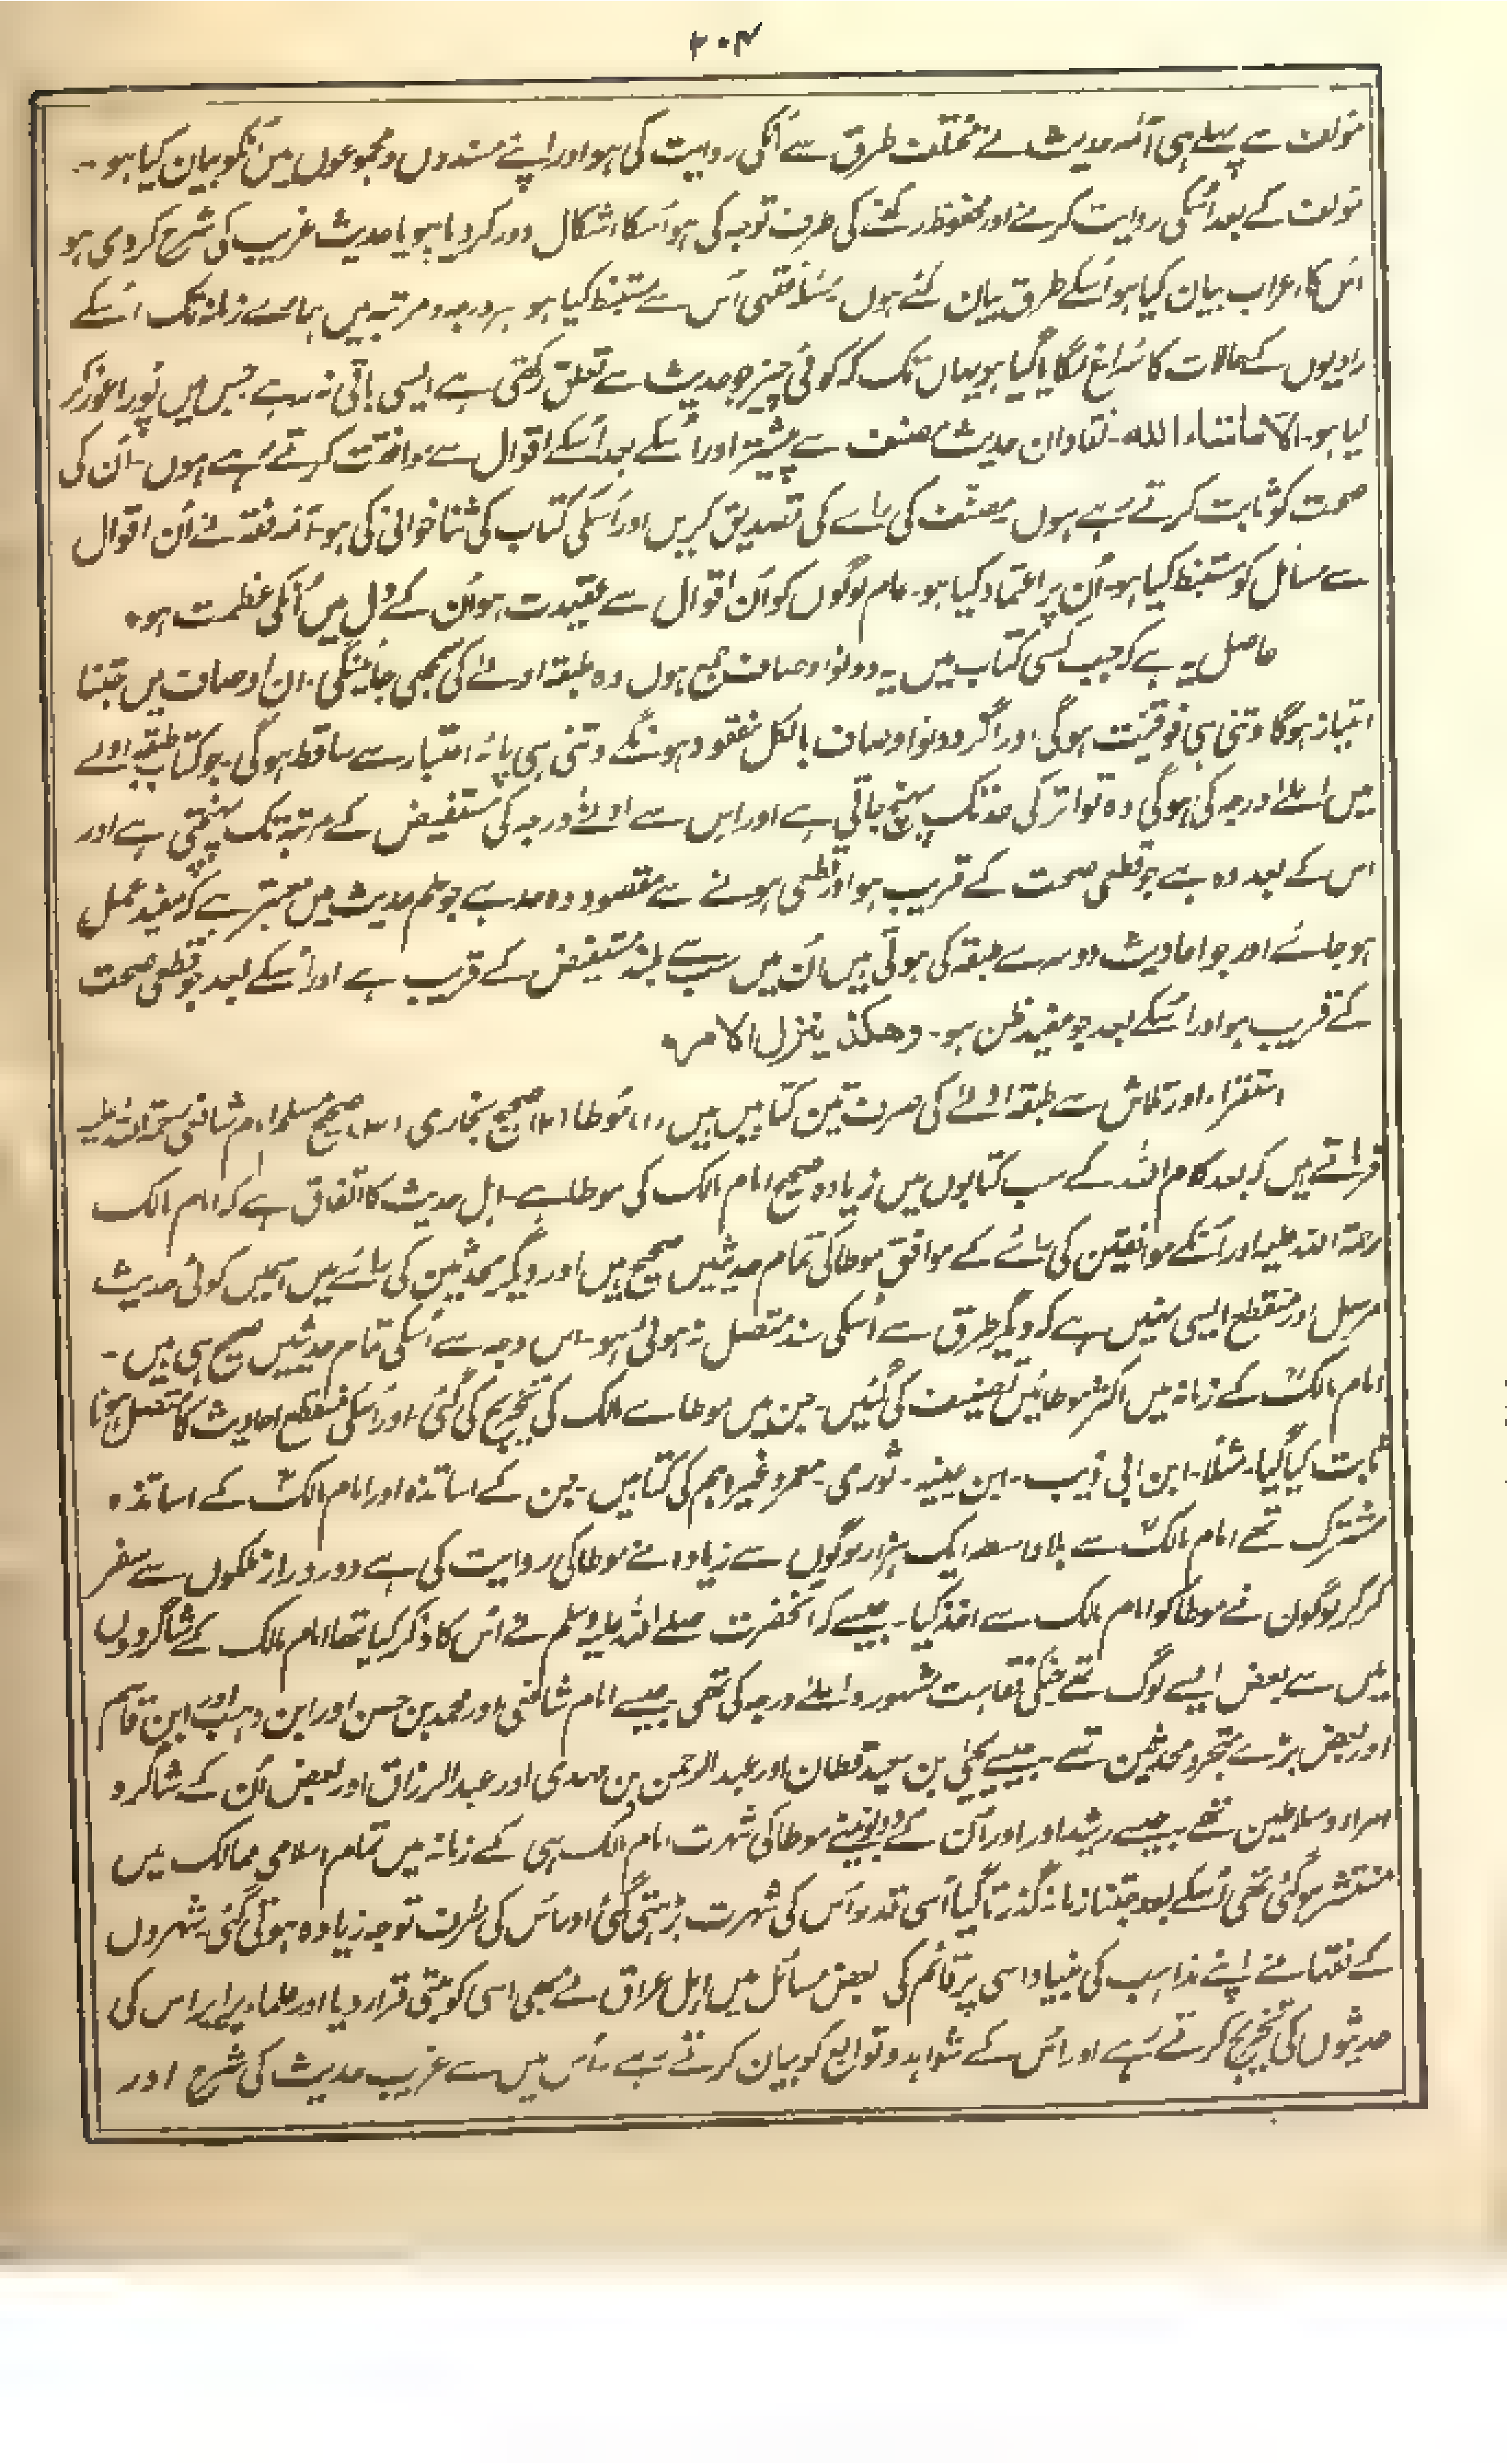 ۲۰۴
مؤلف سے پہلے ہی آئمہ حدیث نے مختلف طرق سے اُنکی روایت کی ہو اور اپنے مسندوں و مجموعوں میں اُنکو بیان کیا ہو۔
مؤلف کے بعد اُنکی روایت کرنے اور محفوظ رکھنے کی طرف توجہ کی ہو اُسکا اشکال دور کر دیا ہو یا حدیث غریب کی شرح کر دی ہو
اُس کا اعراب بیان کیا ہو اُسکے طرق بیان کئے ہوں مسئلہ فقہی اُس سے مستنبط کیا ہو ہر درجہ و مرتبہ میں ہمارے زمانہ تک اُسکے
راویوں کے حالات کا سُراغ لگایا گیا ہو یہاں تک کہ کوئی چیز جو حدیث سے تعلق رکھتی ہے ایسی باقی نہ رہے جس میں پُورا غور نہ کر
لیا ہو۔ الا ماشاء اللہ۔ نقادان حدیث مصنف سے پیشتر اور اُسکے بعد اُسکے اقوال سے موافقت کرتے رہے ہوں۔ اُن کی
صحت کو ثابت کرتے رہے ہوں مصنّف کی رائے کی تصدیق کریں اور اُسکی کتاب کی ثنا خوانی کی ہو۔ آئمہ فقہ نے اُن اقوال
سے مسائل کو مستنبط کیا ہو۔ اُن پر اعتماد کیا ہو۔ عام لوگوں کو اُن اقوال سے عقیدت ہو اُن کے دل میں اُنکی عظمت ہو۔
حاصل یہ ہے کہ جب کسی کتاب میں یہ دونو اوصاف جمع ہوں وہ طبقہ اولے کی سمجھی جائینگی۔ ان اوصاف میں جتنا
امتیاز ہوگا وتنی ہی فوقیّت ہوگی۔ اور اگر دونو اوصاف بالکل مفقود ہونگے وتنی ہی پایۂ اعتبار سے ساقط ہوگی۔ جو کتاب طبقہ اولے
میں اعلےٰ درجہ کی ہوگی وہ تواتر کی حد تک پہنچ جاتی ہے اور اس سے ادنےٰ درجہ کی مستفیض کے مرتبہ تک پہنچتی ہے اور
اس کے بعد وہ ہے جو قطعی صحت کے قریب ہو اور قطعی ہونے سے مقصود وہ حد ہے جو علم حدیث میں معتبر ہے کہ مفید عمل
ہو جائے اور جو احادیث دوسرے طبقہ کی ہوتی ہیں اُن میں سب سے بلند مستفیض کے قریب ہے اور اُسکے بعد جو قطعی صحت
کے قریب ہو اور اُسکے بعد جو مفید ظن ہو۔ وھکذ ینزل الامر۔
استقراء اور تلاش سے طبقہ اولےٰ کی صرف تین کتابیں ہیں (۱) مؤطا (۲) صحیح بخاری (۳) صحیح مسلم امام شافعی رحمۃ اللہ علیہ
فرماتے ہیں کہ بعد کلام اللہ کے سب کتابوں میں زیادہ صحیح امام مالک کی موطا ہے۔ اہل حدیث کا اتفاق ہے کہ امام مالک
رحمۃ اللہ علیہ اور اُنکے موافقین کی رائے کے موافق موطا کی تمام حدیثیں صحیح ہیں اور دیگر محدثین کی رائے میں اسمیں کوئی حدیث
مرسل اور منقطع ایسی نہیں ہے کہ دیگر طرق سے اُسکی سند متصل نہ ہوئی ہو۔ اس وجہ سے اُسکی تمام حدیثیں صحیح ہی ہیں۔
امام مالکؒ کے زمانہ میں اکثر موطائیں تصنیف کی گئیں۔ جن میں موطاے مالک کی تخریج کی گئی۔ اور اُسکی منقطع احادیث کا متصل ہونا
ثابت کیا گیا۔ مثلاً۔ ابن ابی ذیب۔ ابن عیینہ۔ ثوری۔ معمر و غیرہم کی کتابیں۔ جن کے اساتذہ اور امام مالکؒ کے اساتذہ
مشترک تھے امام مالکؒ سے بلاواسطہ ایک ہزار لوگوں سے زیادہ نے موطا کی روایت کی ہے دور دراز ملکوں سے سفر
کر کر لوگوں نے موطا کو امام مالک سے اخذ کیا۔ جیسے کہ آنحضرت صلے اللہ علیہ وسلم نے اُس کا ذکر کیا تھا امام مالک کے شاگردوں
میں سے بعض ایسے لوگ تھے جنکی فقاہت مشہور و اعلےٰ درجہ کی تھی جیسے امام شافعی اور محمد بن حسن اور ابن وہب اور ابن قاسم
اور بعض بڑے متبحر و محدثین تھے۔ جیسے یحیٰی بن سعید قطان اور عبدالرحمن بن مہدی اور عبدالرزاق اور بعض اُن کے شاگرد
امراء و سلاطین تھے۔ جیسے رشید اور اُن کے دونو بیٹے موطا کی شہرت امام مالک ہی کے زمانہ میں تمام اسلامی ممالک میں
منتشر ہو گئی تھی اُسکے بعد جتنا زمانہ گذرتا گیا اُسی قدر اُس کی شہرت بڑھتی گئی اور اُس کی طرف توجہ زیادہ ہوتی گئی۔ شہروں
کے فقہا نے اپنے مذاہب کی بنیاد اسی پر قائم کی بعض مسائل میں اہل عراق نے بھی اسی کو مبنی قرار دیا اور علماء برابر اس کی
حدیثوں کی تخریج کرتے رہے اور اُس کے شواہد و توابع کو بیان کرتے رہے۔ اُس میں سے غریب حدیث کی شرح اور